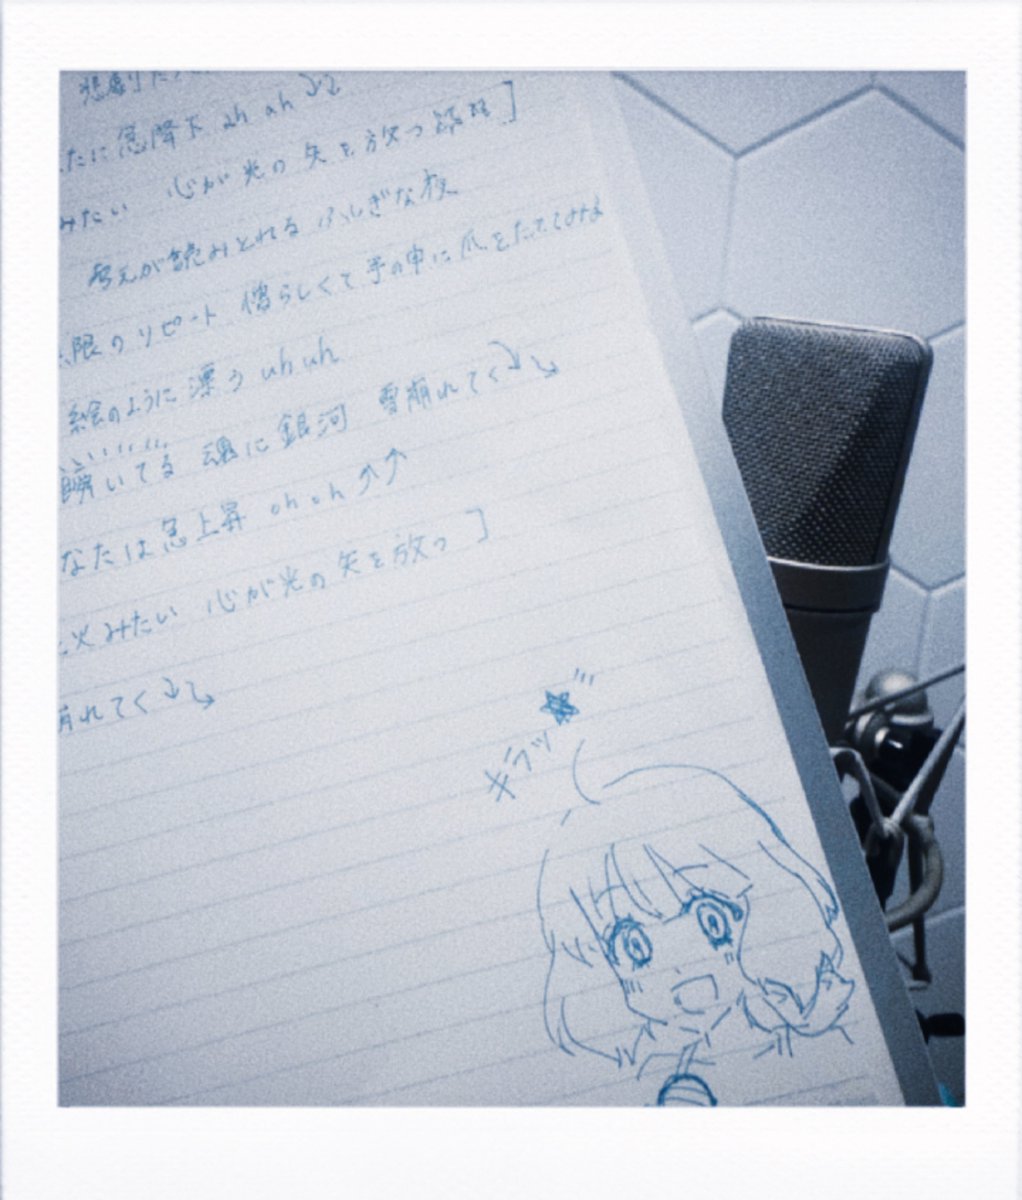 悲劇だ
たに急降下 ah ah ↓↓
みたい 心が光の矢を放つ
考えが読みとれる ふしぎな夜
限のリピート 僧らしくて 手の中に爪をたててみる
絵のように漂う uh uh
瞬いてる 魂に銀河 雪崩れてく ↓↘
なたは急上昇 oh oh ↑↑
火みたい 心が光の矢を放つ ]
れてく ↓↘
キラッ